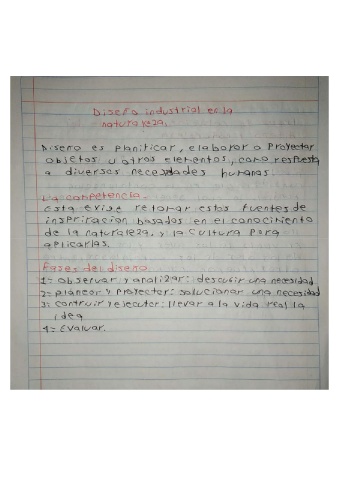 Diseño industrial en la
naturaleza.
Diseño es planificar, elaborar o Proyectar
objetos u otros elementos, como respuesta
a diversas necesidades humanas.
La competencia.
Esta exige retomar estas fuentes de
inspiración basados en el conocimiento
de la naturaleza. y la cultura para
aplicarlas.
Fases del diseño
1= observar y analizar: descubrir una necesidad
2= planear y Proyectar: solucionar una necesidad
3= construir y ejecutar: llevar a la vida real la
idea
4= Evaluar.